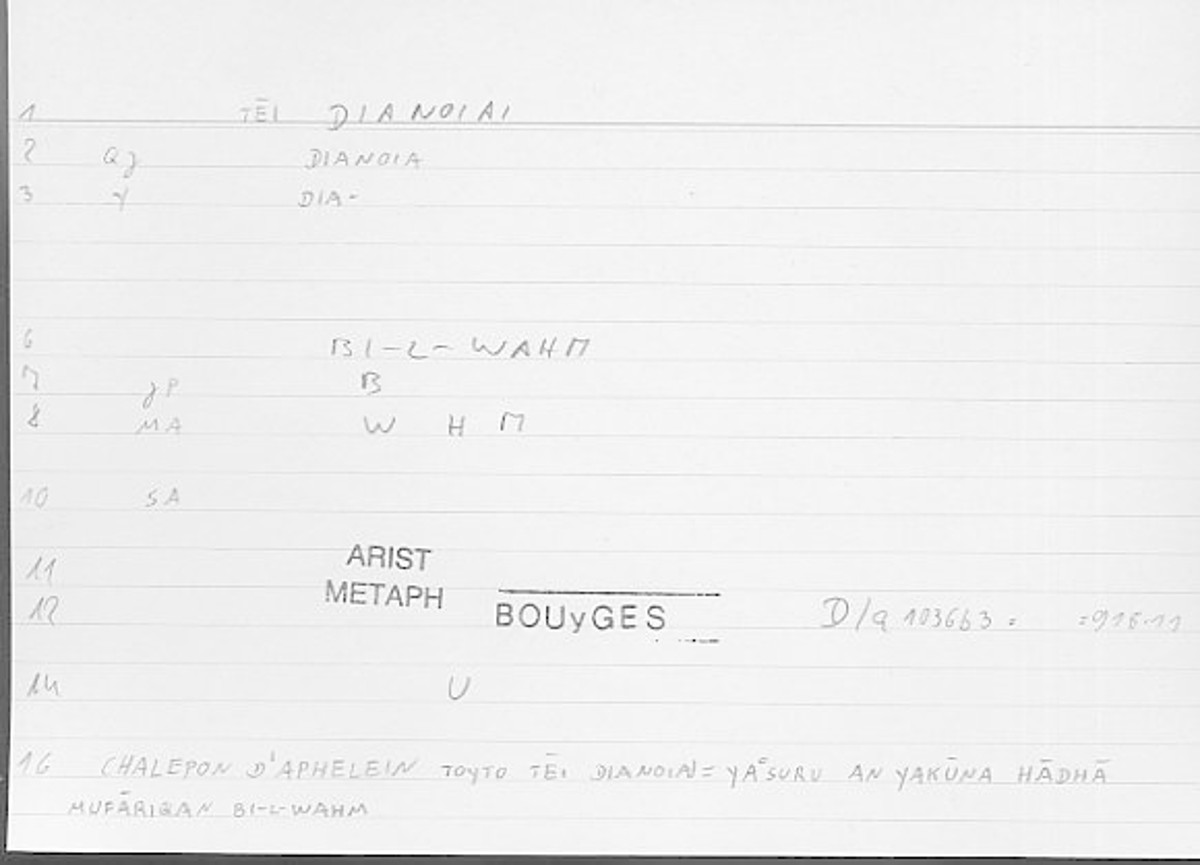 1 TĒI DIANOIAI
2 Qj DIANOIA
3 Y DIA-
6 BI-L-WAHM
7 jP B
8 MA W H M
10 SA
11 ARIST
12 METAPH BOUyGES D/a 1036b3 = =916.11
14 U
16 CHALEPON D'APHELEIN TOYTO TĒI DIANOIAI = YAʿSURU AN YAKŪNA HĀDHĀ
MUFĀRIQAN BI-L-WAHM